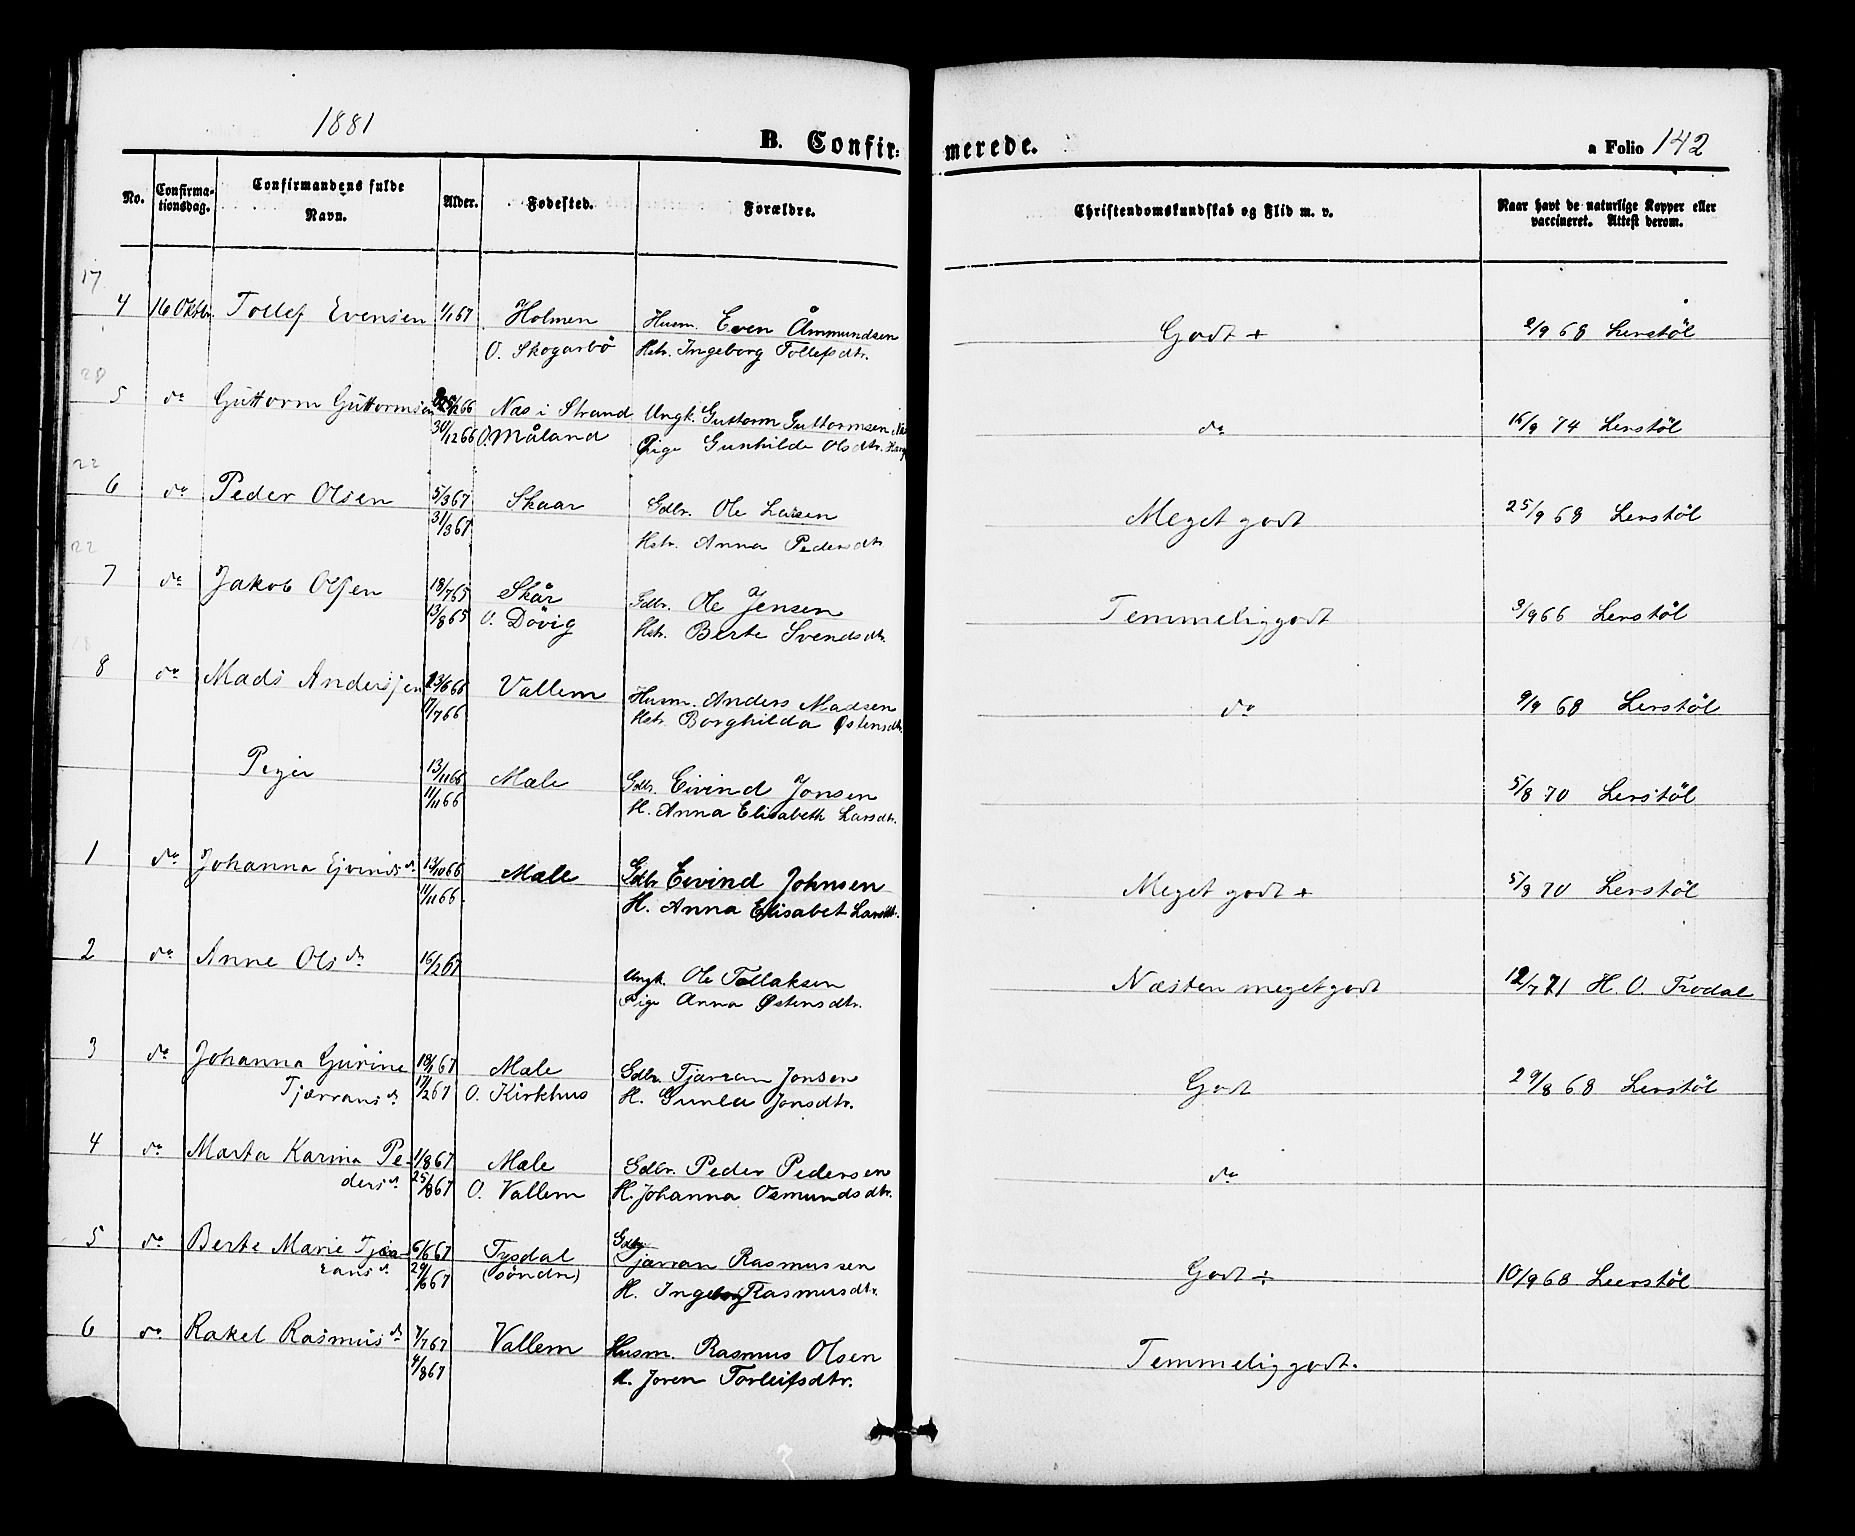 1881
B. Confirmerede.
a Folio 142
No. Confirmationsdag. Confirmandens fulde Navn. Alder. Fødested. Forældre. Christendomskundskab og Flid m. v. Naar havt de naturlige Kopper eller vaccineret. Attest derom.
17
4 16 Oktbr. Tollef Evensen 1/1 67 Holmen Husm. Even Åmmundsen Godt + 2/9 68 Lerstöl
O. Skogarbö Hstr. Ingeborg Tollefsdtr.
20
5 do Guttorm Guttormsen 66 Næs i Strand Ungk. Guttorm Guttormsen do 16/9 74 Lerstöl
30/12 66 O. Måland Pige Gunhilde Olsdtr.
22
6 do Peder Olsen 5/3 67 Skaar Gdbr. Ole Larsen Meget godt 25/9 68 Lerstöl
31/3 67 Hstr. Anna Pedersdtr
22
7 do Jakob Olsen 18/7 65 Skår Gdbr. Ole Jensen Temmelig godt 3/9 66 Lerstöl
13/8 65 O. Dövig Hstr. Berte Svendsdtr.
18
8 do Mads Andersen 23/6 66 Vallem Husm. Anders Madsen do 9/9 68 Lerstöl
1/7 66 Hstr. Borghilda Østensdtr.
Piger 13/11 66 Mæle Gdbr. Eivind Jonsen 5/8 70 Lerstöl
11/11 66 H. Anna Elisabeth Larsdtr.
1 do Johanna Ejvindsdr 13/10 66 Mæle Gdbr Eivind Johnsen Meget godt + 5/8 70 Lerstöl
11/11 66 H. Anna Elisabet Larsdtr.
2 do Anne Olsdr 16/2 67 Ungk. Ole Tollaksen Næsten meget godt 12/7 71 H. O. Trodal
Pige Anna Østensdtr.
3 do Johanna Gurine 18/1 67 Mæle Gdbr. Tjærran Jonsen Godt 29/8 68 Lerstöl
Tjærransdr 17/2 67 O. Kirkhus H. Gunla Jonsdtr.
4 do Marta Karina Pe- 1/8 67 Mæle Gdbr. Peder Pedersen do
dersdr 25/8 67 O. Vallem H. Johanna Osmundsdtr.
5 do Berte Marie Tjær- 6/6 67 Tysdal Gdbr Tjærran Rasmussen Godt ÷ 10/9 68 Leerstöl
ransdr 29/6 67 (söndr) H. Ingeborg Rasmusdtr.
6 do Rakel Rasmusdr 7/7 67 Vallem Husm. Rasmus Olsen Temmelig godt.
4/8 67 H. Joren Torleifsdtr.